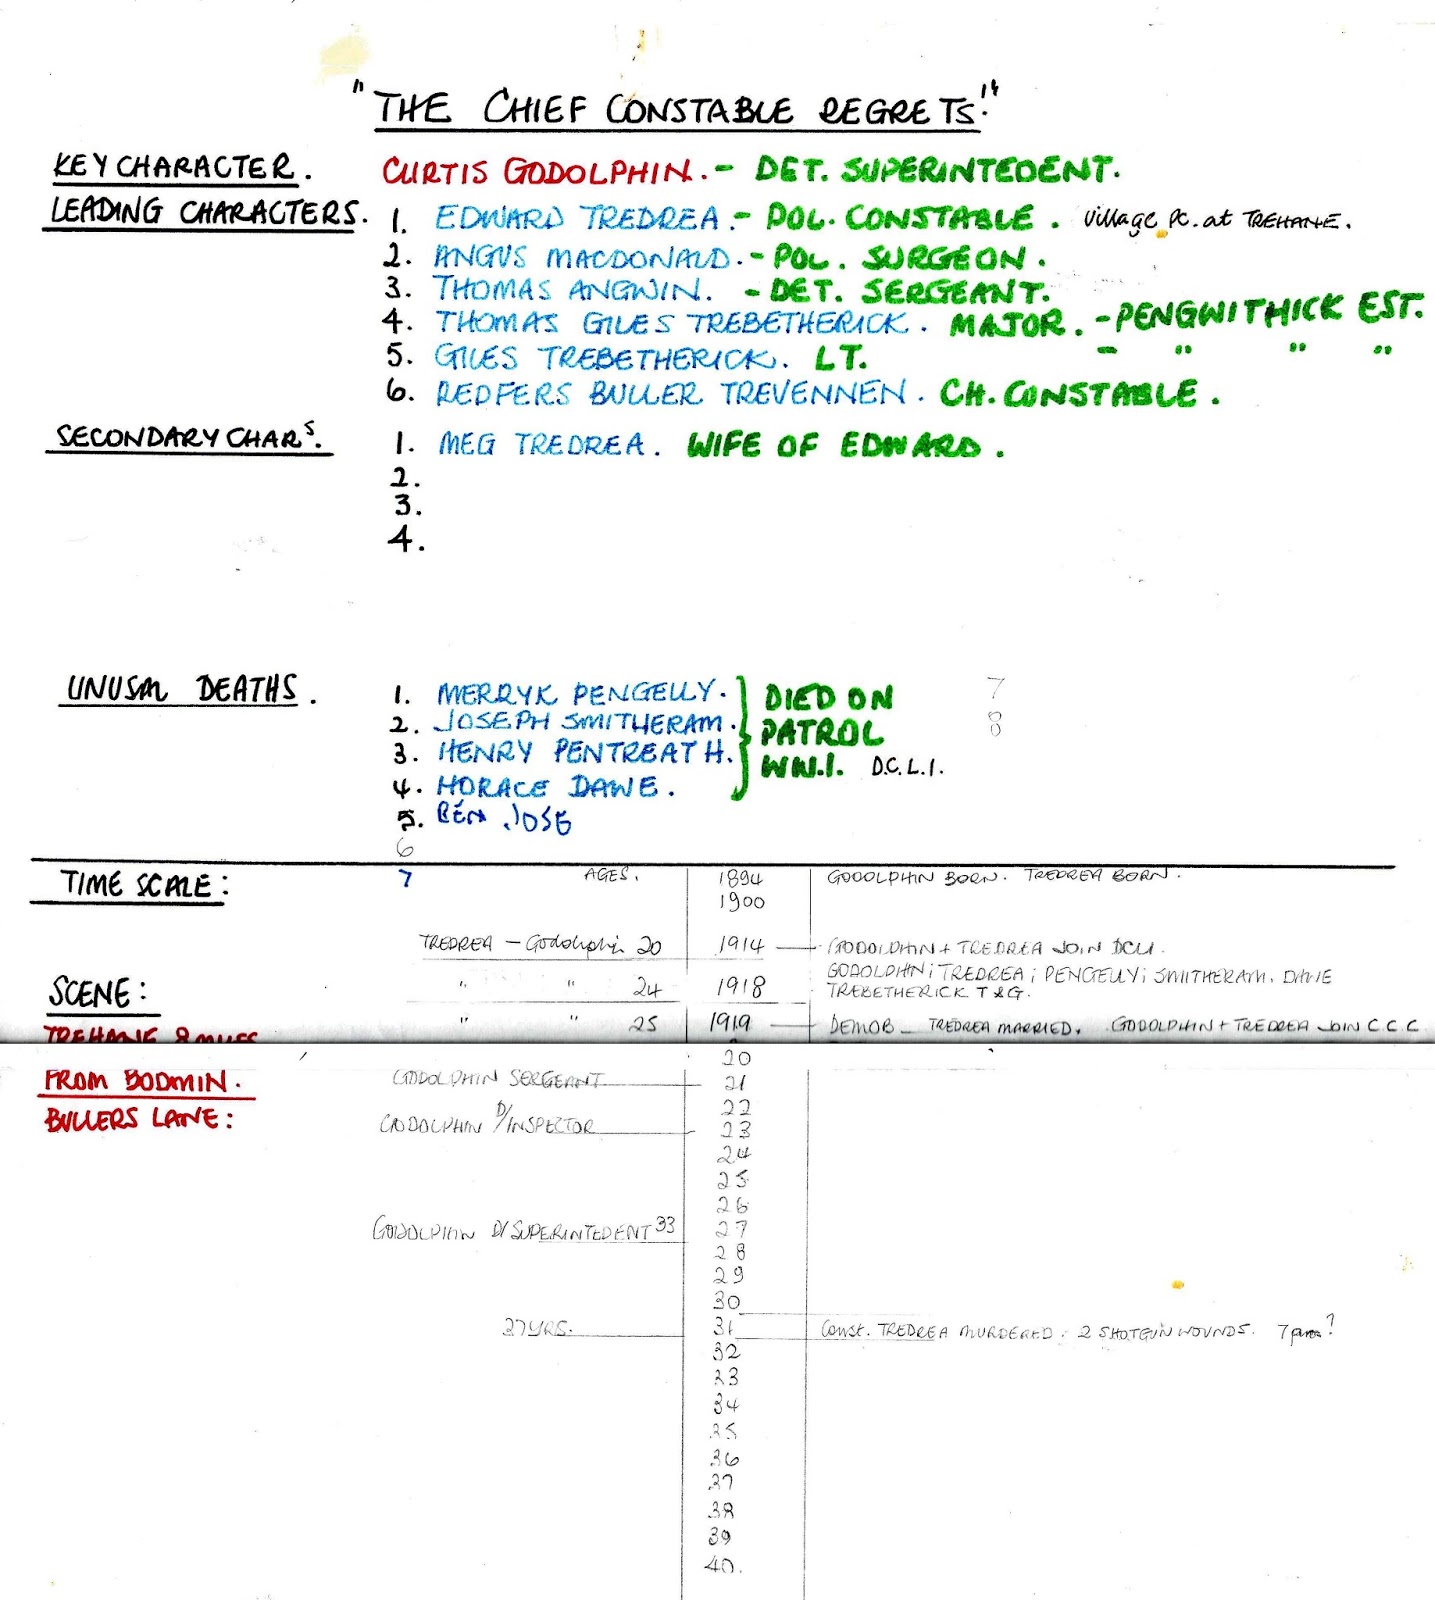 "THE CHIEF CONSTABLE REGRETS."
KEY CHARACTER. CURTIS GODOLPHIN. - DET. SUPERINTEDENT.
LEADING CHARACTERS. 1. EDWARD TREDREA. - POL. CONSTABLE. Village PC. at TREHANE.
2. ANGUS MACDONALD. - POL. SURGEON.
3. THOMAS ANGWIN. - DET. SERGEANT.
4. THOMAS GILES TREBETHERICK. MAJOR. - PENGWITHICK EST.
5. GILES TREBETHERICK. LT. - " " "
6. REDFERS BULLER TREVENNEN. CH. CONSTABLE.
SECONDARY CHARS. 1. MEG TREDREA. WIFE OF EDWARD.
2.
3.
4.
UNUSAL DEATHS. 1. MERRYK PENGELLY. DIED ON 7
2. JOSEPH SMITHERAM. PATROL 8
3. HENRY PENTREATH. WW.I. D.C.L.I.
4. HORACE DAWE.
5. BEN JOSE
6
TIME SCALE: 7 AGES. 1894 GODOLPHIN BORN. TREDREA BORN.
1900
TREDREA - Godolphin 20 1914 GODOLPHIN + TREDREA JOIN DCLI.
SCENE: " " 24 1918 GODOLPHIN; TREDREA; PENGELLY; SMITHERAM. DAWE
TREBETHERICK T & G.
TREHANE 8 MILES " " 25 1919 DEMOB - TREDREA MARRIED. GODOLPHIN + TREDREA JOIN C.C.C
20
FROM BODMIN. GODOLPHIN SERGEANT 21
BULLERS LANE: 22
GODOLPHIN D/INSPECTOR 23
24
25
26
GODOLPHIN D/SUPERINTEDENT 33 27
28
29
30
37 YRS. 31 Const. TREDREA MURDERED. 2 SHOTGUN WOUNDS. 7pm?
32
33
34
35
36
37
38
39
40.